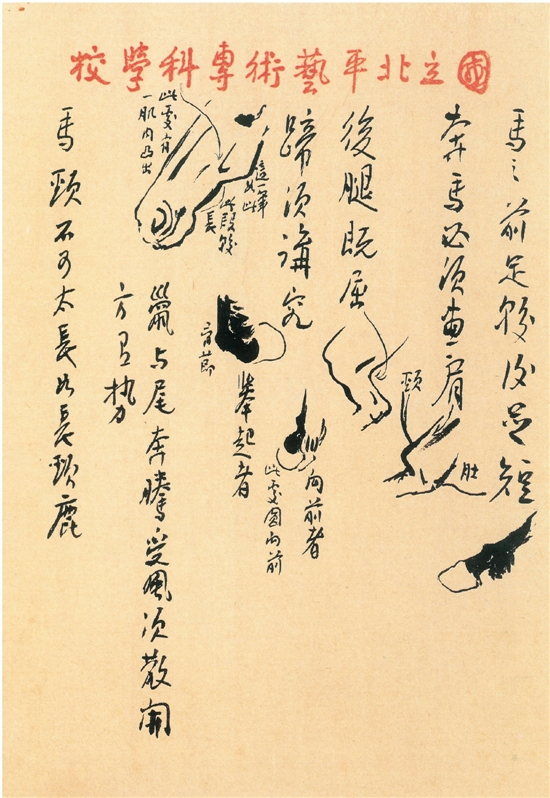 國立北平藝術專科學校
馬之前足較後足短
奔馬必須畫肩
頸
肚
後腿既屈
蹄須講究
向前者
此處圓向前
舉起者
骨節
這一筆
如此
此段較
長
此處有
一肌肉凸出
鬣与尾奔騰受風須散開
方有势
馬頸不可太長如長頸鹿